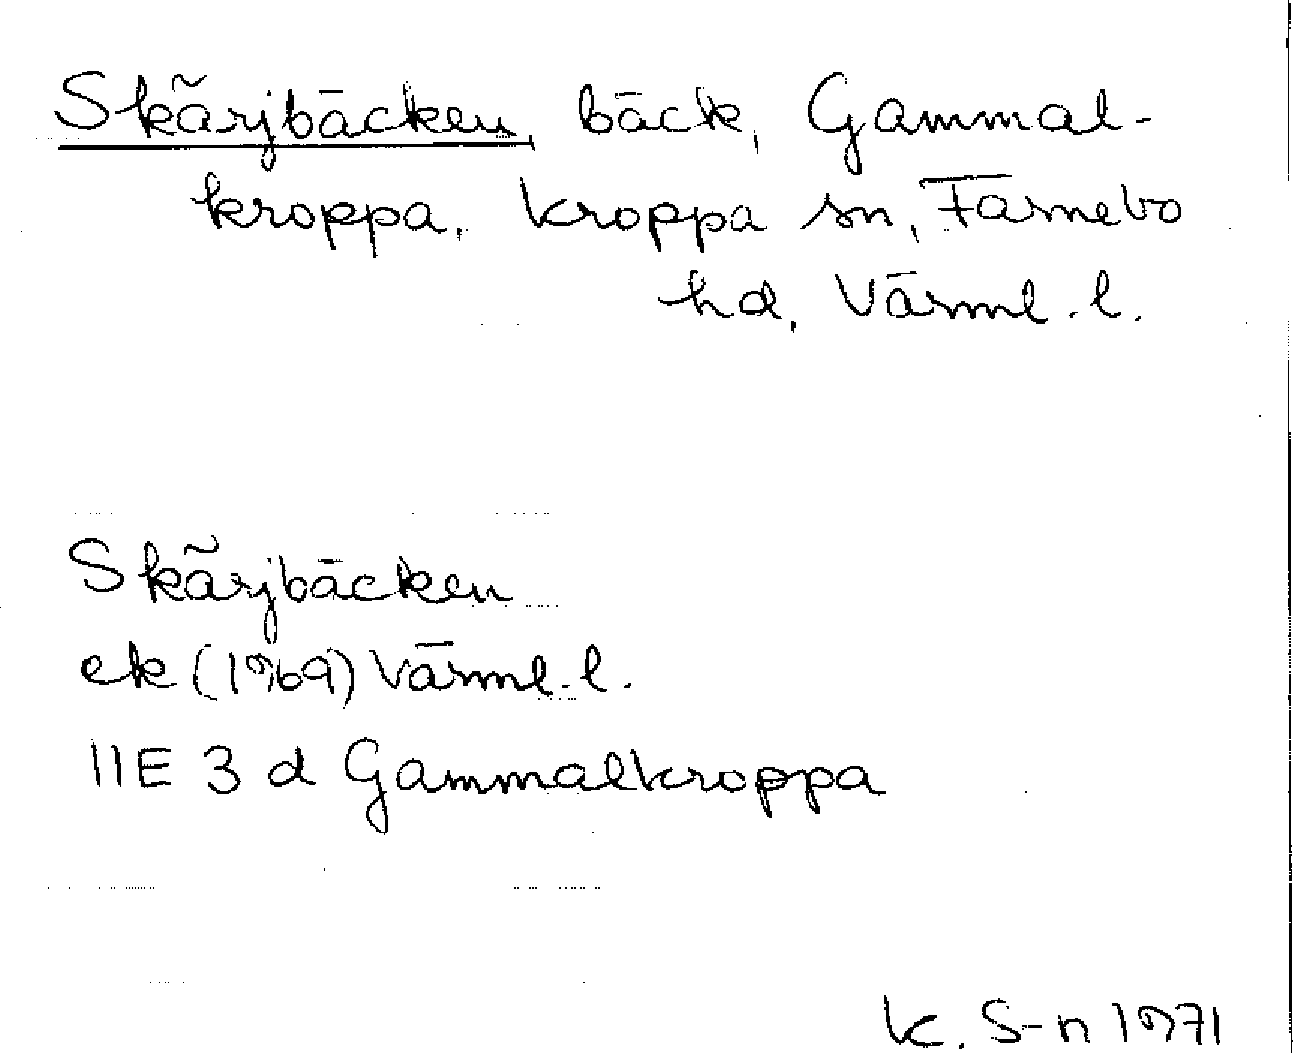 Skärjbäcken, bäck, Gammal-
kroppa, Kroppa sn, Färnebo
hd, Värml. l.
Skärjbäcken
ek (1969) Värml. l.
11E 3 d Gammalkroppa
K. S-n 1971